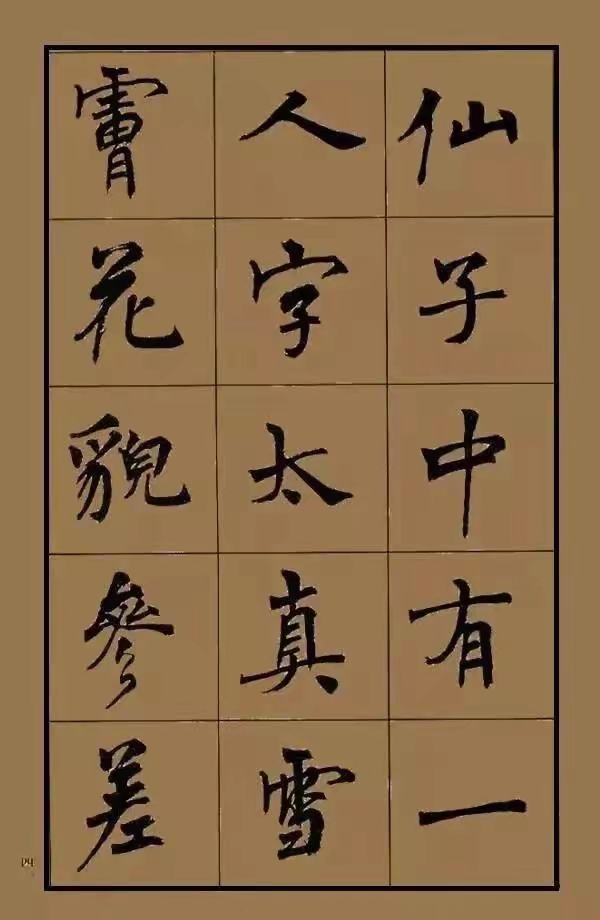 仙子中有一
人字太真雪
膚花貌參差